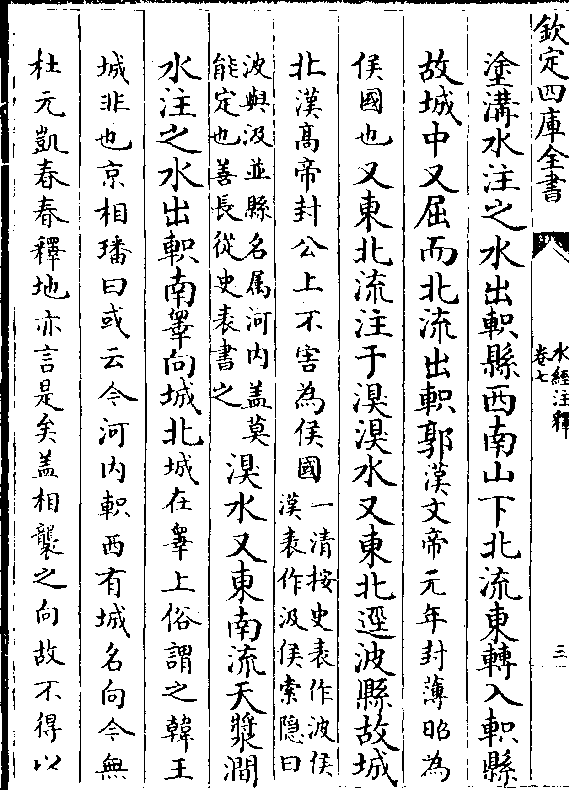 欽定四庫全書
水經注釋
卷七
三
塗溝水注之水出軹縣西南山下北流東轉入軹縣
故城中又屈而北流出軹郭漢文帝元年封薄昭為
侯國也又東北流注于湨湨水又東北逕波縣故城
北漢髙帝封公上不害為侯國
一清按史表作波侯
漢表作汲侯索隐曰
波與汲並縣名屬河内葢莫
能定也善長從史表書之
湨水又東南流天漿澗
水注之水出軹南臯向城北城在臯上俗謂之韓王
城非也京相璠曰或云今河内軹西有城名向今無
杜元凱春春釋地亦言是矣盖相襲之向故不得以